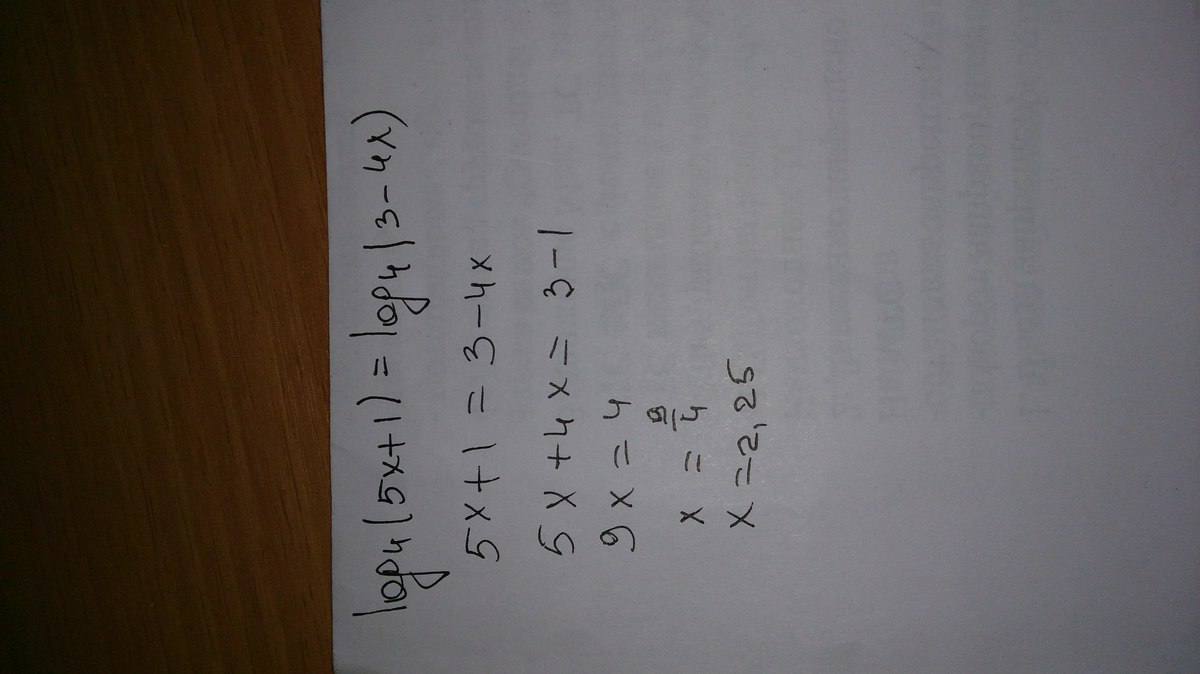 log₄(5x+1) = log₄(3-4x)
5x+1 = 3-4x
5x+4x = 3-1
9x = 4
x = 9/4
x = 2,25